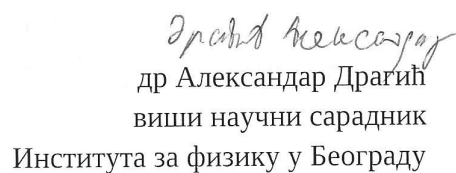 Драгић Александар
др Александар Драгић
виши научни сарадник
Института за физику у Београду